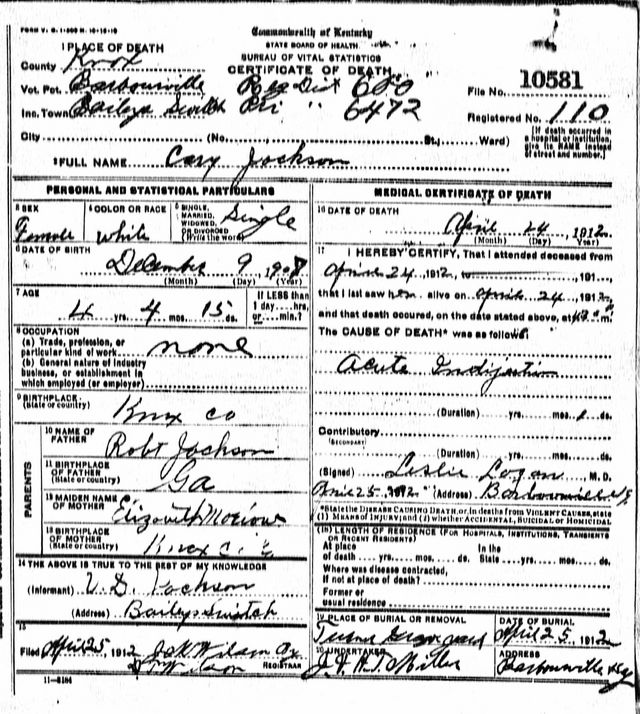 Commonwealth of Kentucky
STATE BOARD OF HEALTH
BUREAU OF VITAL STATISTICS
CERTIFICATE OF DEATH
1 PLACE OF DEATH
County Knox
Vot. Pct. Barbourville Reg Dist 680
Inc. Town Baileys Switch Pri " 6472
File No. 10581
Registered No. 110
City (No. St.; Ward)
[If death occurred in a hospital or institution, give its NAME instead of street and number.]
2 FULL NAME Cary Jackson
PERSONAL AND STATISTICAL PARTICULARS
3 SEX Female
4 COLOR OR RACE White
5 SINGLE, MARRIED, WIDOWED, OR DIVORCED (Write the word) Single
6 DATE OF BIRTH
December 9, 1908
(Month) (Day) (Year)
7 AGE
4 yrs. 4 mos. 15 ds.
If LESS than 1 day.... hrs. or.... min.?
8 OCCUPATION
(a) Trade, profession, or particular kind of work none
(b) General nature of industry business, or establishment in which employed (or employer)
9 BIRTHPLACE (State or country) Knox Co
PARENTS
10 NAME OF FATHER Robt Jackson
11 BIRTHPLACE OF FATHER (State or country) Ga
12 MAIDEN NAME OF MOTHER Elizabeth
13 BIRTHPLACE OF MOTHER (State or country) Knox
14 THE ABOVE IS TRUE TO THE BEST OF MY KNOWLEDGE
(Informant) Jackson
(Address) Baileys Switch
15
Filed April 25, 1912 Wilson
Wilson REGISTRAR
11-3184
MEDICAL CERTIFICATE OF DEATH
16 DATE OF DEATH
April 24, 1912
(Month) (Day) (Year)
17 I HEREBY CERTIFY, That I attended deceased from
April 24, 1912, to 191
that I last saw her alive on April 24, 1912,
and that death occured, on the date stated above, at m.
The CAUSE OF DEATH* was as follows:
Acute Indijestion
(Duration) yrs. mos. ds.
Contributory
(SECONDARY)
(Duration) yrs. mos. ds.
(Signed) Leslie Logan M. D.
April 25, 1912 (Address) Barbourville Ky
*State the DISEASE CAUSING DEATH, or, in deaths from VIOLENT CAUSES, state (1) MEANS OF INJURY; and (2) whether ACCIDENTAL, SUICIDAL or HOMICIDAL
18 LENGTH OF RESIDENCE (FOR HOSPITALS, INSTITUTIONS, TRANSIENTS OR RECENT RESIDENTS)
At place of death yrs. mos. ds. In the State yrs. mos. ds.
Where was disease contracted, if not at place of death?
Former or usual residence
19 PLACE OF BURIAL OR REMOVAL
Graveyard
DATE OF BURIAL
April 25, 1912
20 UNDERTAKER
Miller
ADDRESS
Barbourville Ky